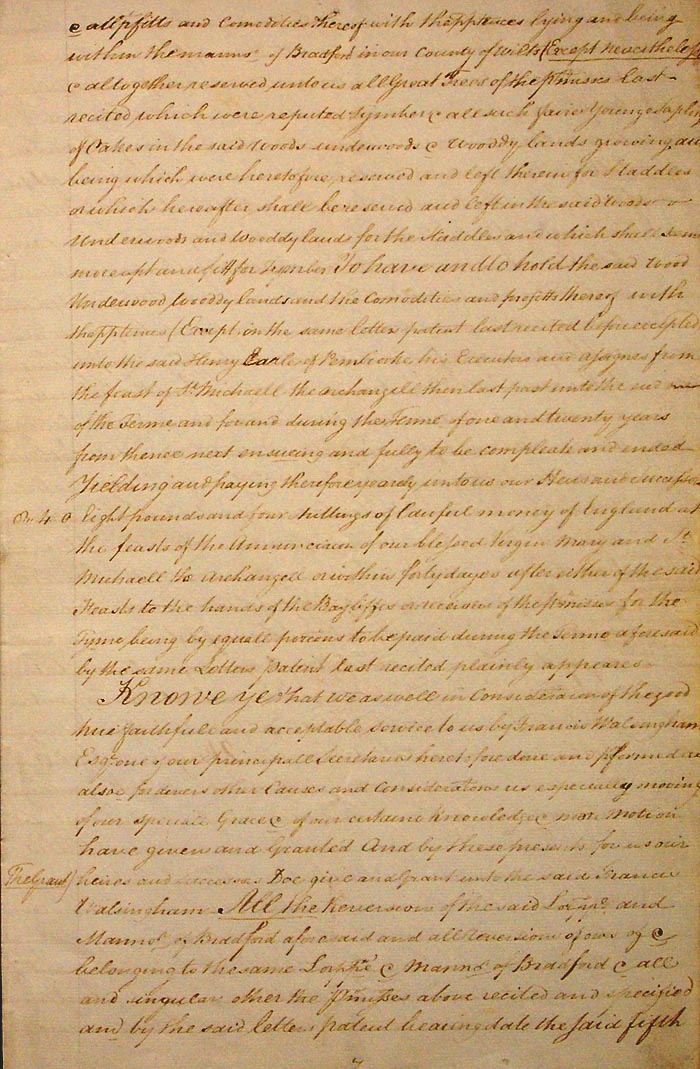 & all pfitts and Comodities thereof with thapptences lying and being
within the mannr of Bradford in our County of Wilts (Except neverthelesse
& altogether reserved unto us all Great Trees of the pmisses last
recited which were reputed Tymber & all such faire Younge Saplin
of Oakes in the said Woods underwoods & Wooddy lands growing and
being which were heretofore reserved and left therein for Staddles
or which hereafter shall be reserved and left in the said Woods
Underwoods and Wooddy lands for the Staddles and which shall seem
more apt and fitt for Tymber To have and to hold the said Wood
Underwood Wooddy lands and the Comodities and profitts thereof with
thapptences (Except in the same letters patent last recited before excepted
unto the said Henry Earle of Pembrooke his Executors and assignes from
the feast of St. Michaell the archangell then last past unto the end
of the Terme and for and during the Terme of one and twenty years
from thence next ensueing and fully to be compleate and ended
Yielding and paying therefore yearely unto us our Heires and Successo
8 .. 4 .. 0 Eight pounds and four shillings of Lawful money of England at
the feasts of the Annunciacon of our blessed Virgin Mary and St.
Michaell the Archangell or within forty dayes after either of the said
Feasts to the hands of the Bayliffes or receivers of the pmisses for the
Tyme being by equall porcions to be paid during the Terme aforesaid
by the same Letters Patent last recited plainely appeares
Knowe ye that we as well in Consideracon of the good
true faithfull and acceptable service to us by Francis Walsingham
Esqr one of our principall Secretaries heretofore done and pformed as
alsoe for divers other Causes and Consideracons us especially moving
of our speciall Grace & of our certaine Knowledge & meer Motion
have given and Granted And by these presents for us our
The Grant) heires and successors Doe give and Grant unto the said Francis
Walsingham All the Reversion of the said Lorpp and
Mannor of Bradford aforesaid and all Reversions of ours of &
belonging to the same Lorpp & Mannor of Bradford & all
and singular other the pmisses above recited and specified
and by the said letters patent bearing date the said fifth
7